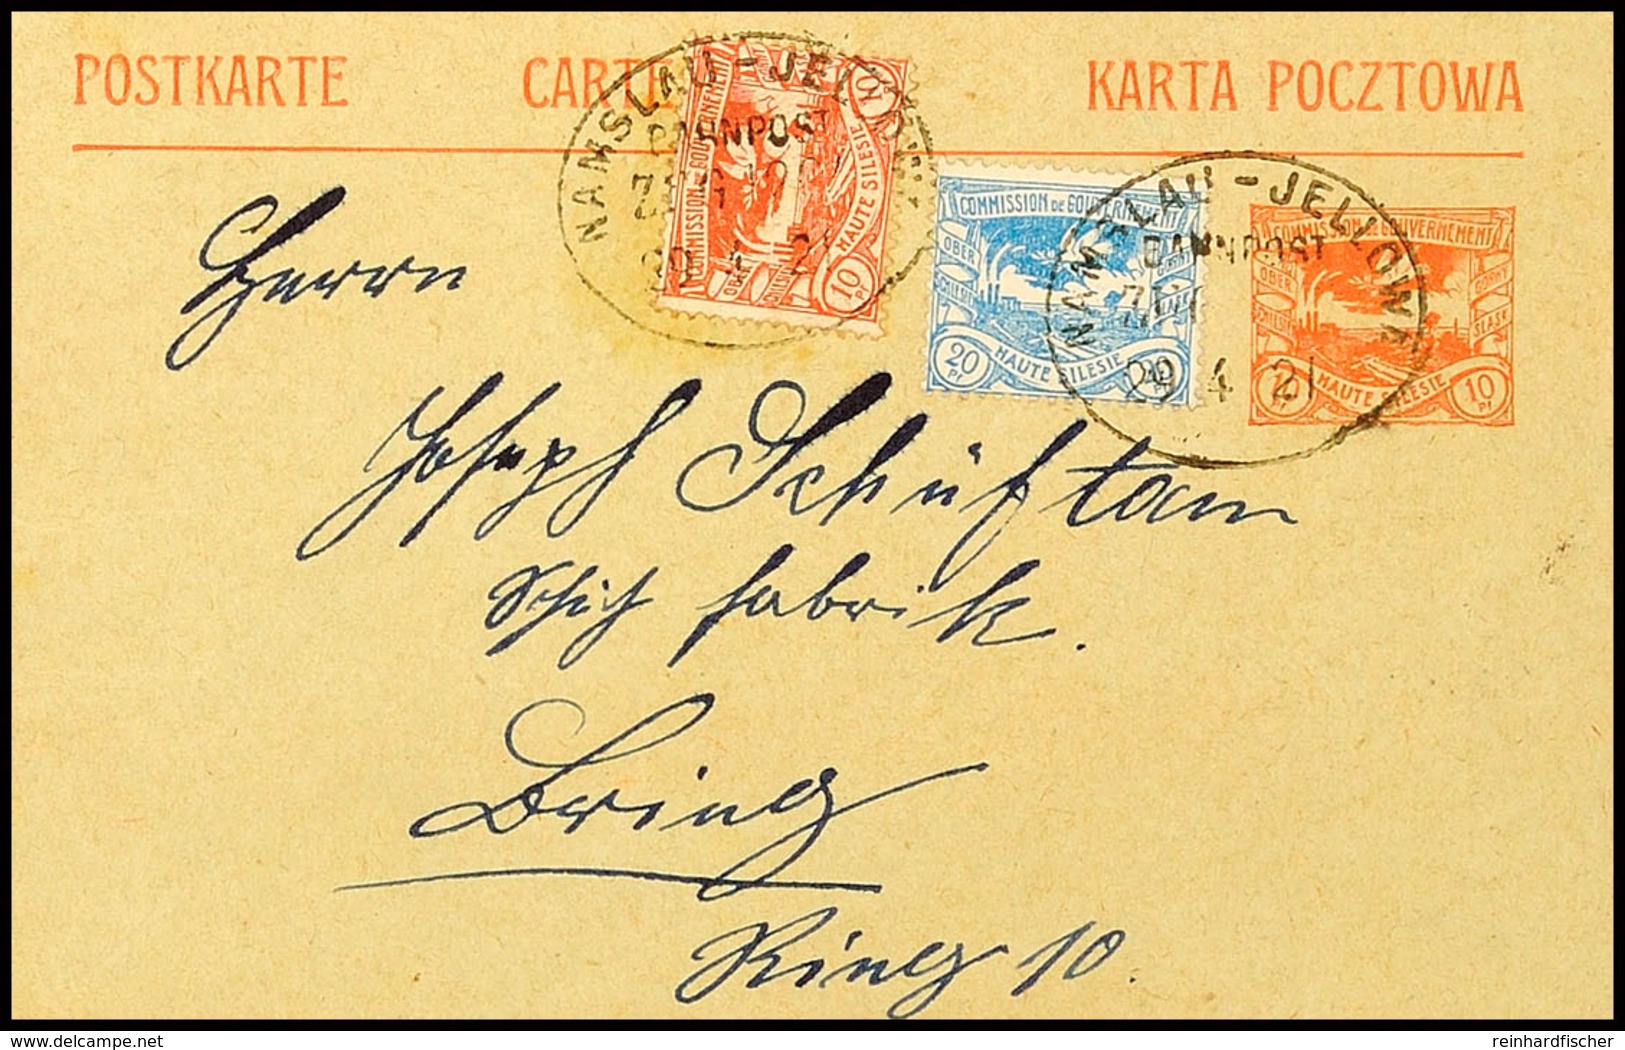 POSTKARTE CARTE KARTA POCZTOWA
NAMSLAU - JELLOWA
BAHNPOST
ZUG
29 4 21
COMMISSION DE GOUVERNEMENT
OBER SCHLESIEN
HAUTE SILESIE
10 Pf
10
COMMISSION DE GOUVERNEMENT
OBER SCHLESIEN GORNY SLASK
20 Pf HAUTE SILESIE
NAMSLAU - JELLOWA
BAHNPOST
ZUG
29 4 21
COMMISSION DE GOUVERNEMENT
OBER SCHLESIEN GORNY SLASK
HAUTE SILESIE 10 Pf
Herrn
Joseph Schüftan
fabrik.
Brieg
Ring 10.
delcampe.net
reinhardfischer